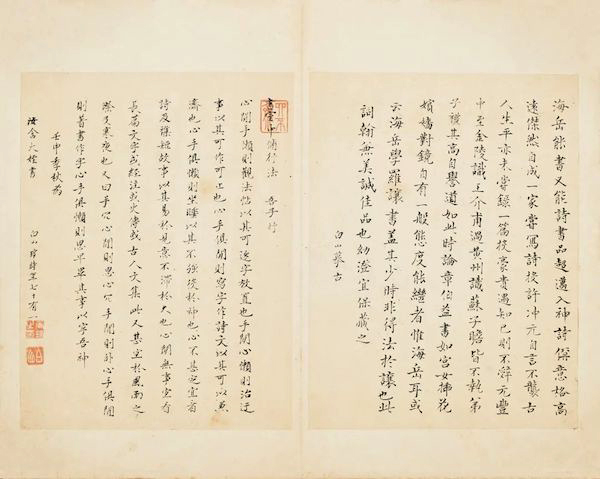 海岳能書又能詩書品超邁入神詩意格高
遠傑然自成一家嘗寫詩投許冲元自言不襲古
人生平亦未嘗錄一篇投豪貴遇知己則不辭元豐
中至金陵識王介甫過黃州識蘇子瞻皆不執弟
子禮其高自譽道如此時論章伯益書如宮女插花
嬪嬙對鏡自有一般態度能繼者惟海岳耳或
云海岳學羅讓書蓋其少時非得法於讓也此
詞翰兼美誠佳品也幼澄宜保藏之
白山摹古
書室中脩行法 吾子行
心閒手懶則觀法帖以其可逐字放置也手閒心懶則治迂
事以其可作可止也心手俱閒則寫字作詩文以其可以兼
濟也心手俱懶則坐睡以其不強役於神也心不甚定宜看
詩及雜短故事以其易於見意不滯於久也心閒無事宜看
長篇文字或經注或史傳或古人文集此又甚宜於風雨之
際及寒夜也又曰手冗心閒則思心冗手閒則卧心手俱閒
則著書作字心手俱懶則思早畢其事以寧吾神
壬申季秋為
汝含大檀書
白山 時年七十有一